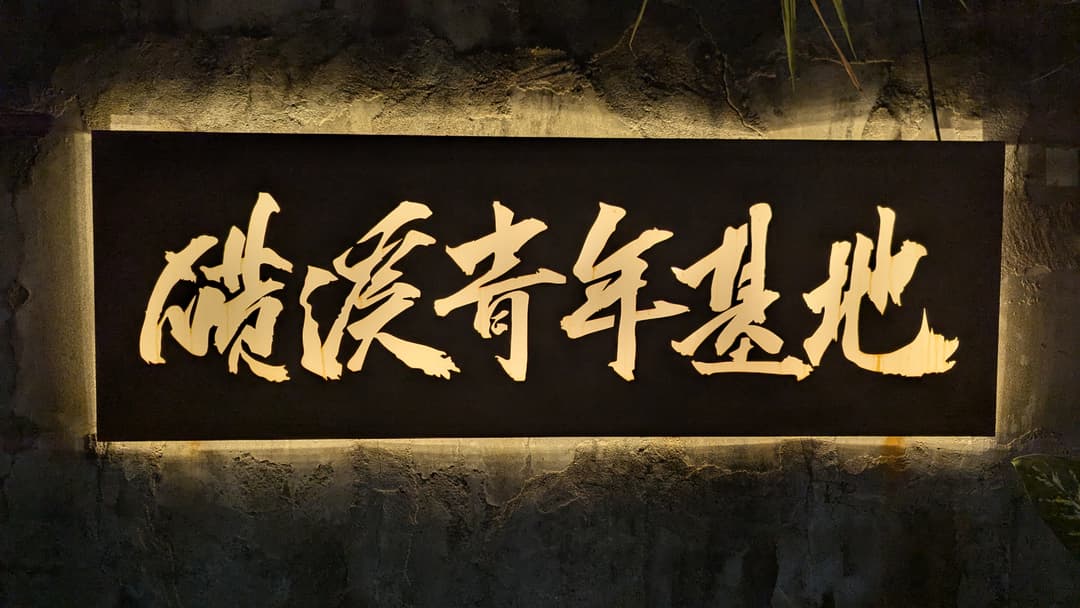 磺溪青年基地